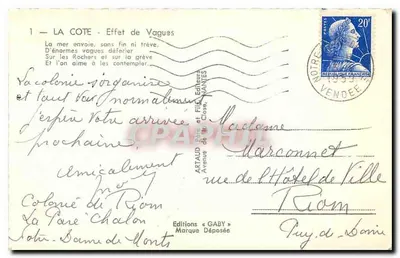 1 — LA COTE - Effet de Vagues
La mer envoie, sans fin ni trève,
D'énormes vagues déferler
Sur les Rochers et sur la grève
Et l'on aime à les contempler.
La colonie s'organise
et tout va normalement
j'espère votre arrivée
prochaine.
Amicalement
Colonie de Riom
La Paré Chalon
Notre-Dame de Monts
ARTAUD Père et Fils, Editeurs
Avenue de la Close, NANTES
Editions « GABY »
Marque Déposée
20F
NOTRE-
VENDEE
Madame
Marconnet
rue de l'Hôtel de Ville
Riom
Puy-de-Dôme